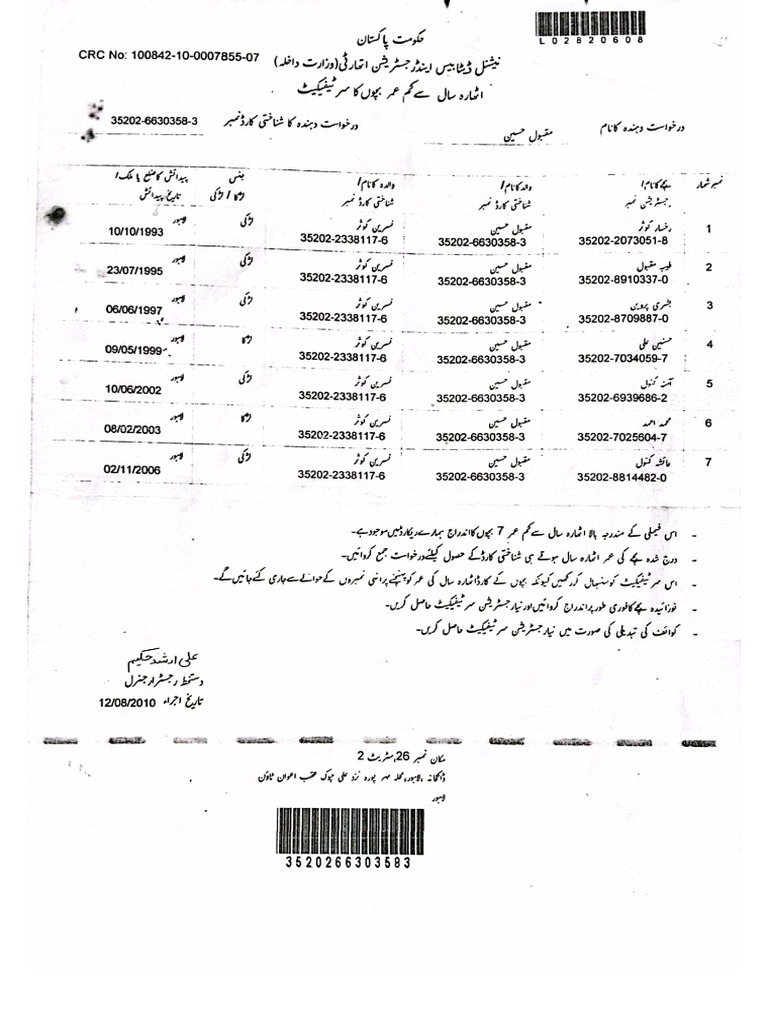 حکومت پاکستان
L02820608
CRC No: 100842-10-0007855-07
نیشنل ڈیٹابیس اینڈ رجسٹریشن اتھارٹی (وزارت داخلہ)
اٹھارہ سال سے کم عمر بچوں کا سرٹیفیکیٹ
درخواست دہندہ کا نام مقبول حسین درخواست دہندہ کا شناختی کارڈ نمبر 35202-6630358-3
نمبر شمار بچے کا نام/ والد کا نام/ والدہ کا نام/ جنس پیدائش کا ضلع یا ملک/
رجسٹریشن نمبر شناختی کارڈ نمبر شناختی کارڈ نمبر لڑکا / لڑکی تاریخ پیدائش
1 رخسار کوثر مقبول حسین نسرین کوثر لڑکی لاہور
35202-2073051-8 35202-6630358-3 35202-2338117-6 10/10/1993
2 طیبہ مقبول مقبول حسین نسرین کوثر لڑکی لاہور
35202-8910337-0 35202-6630358-3 35202-2338117-6 23/07/1995
3 بشری پروین مقبول حسین نسرین کوثر لڑکی لاہور
35202-8709887-0 35202-6630358-3 35202-2338117-6 06/06/1997
4 حسنین علی مقبول حسین نسرین کوثر لڑکا لاہور
35202-7034059-7 35202-6630358-3 35202-2338117-6 09/05/1999
5 آمنہ کنول مقبول حسین نسرین کوثر لڑکی لاہور
35202-6939686-2 35202-6630358-3 35202-2338117-6 10/06/2002
6 محمد احمد مقبول حسین نسرین کوثر لڑکا لاہور
35202-7025604-7 35202-6630358-3 35202-2338117-6 08/02/2003
7 عائشہ کنول مقبول حسین نسرین کوثر لڑکی لاہور
35202-8814482-0 35202-6630358-3 35202-2338117-6 02/11/2006
- اس فیملی کے مندرجہ بالا اٹھارہ سال سے کم عمر 7 بچوں کا اندراج ہمارے ریکارڈ میں موجود ہے۔
- درج شدہ بچے کی عمر اٹھارہ سال ہوتے ہی شناختی کارڈ کے حصول کیلئے درخواست جمع کروائیں۔
- اس سرٹیفیکیٹ کو سنبھال کر رکھیں کیونکہ بچوں کے کارڈ اٹھارہ سال کی عمر کو پہنچنے پر انہی نمبروں کے حوالے سے جاری کئے جائیں گے۔
- نوزائیدہ بچے کا فوری طور پر اندراج کروائیں اور نیا رجسٹریشن سرٹیفیکیٹ حاصل کریں۔
- کوائف کی تبدیلی کی صورت میں نیا رجسٹریشن سرٹیفیکیٹ حاصل کریں۔
علی ارشد حکیم
دستخط رجسٹرار جنرل
تاریخ اجراء 12/08/2010
مکان نمبر 26، سٹریٹ 2
ڈاکخانہ ،لاہور، محلہ مہر پورہ نزد علی چوک عقب اعوان ٹاؤن
لاہور
3520266303583